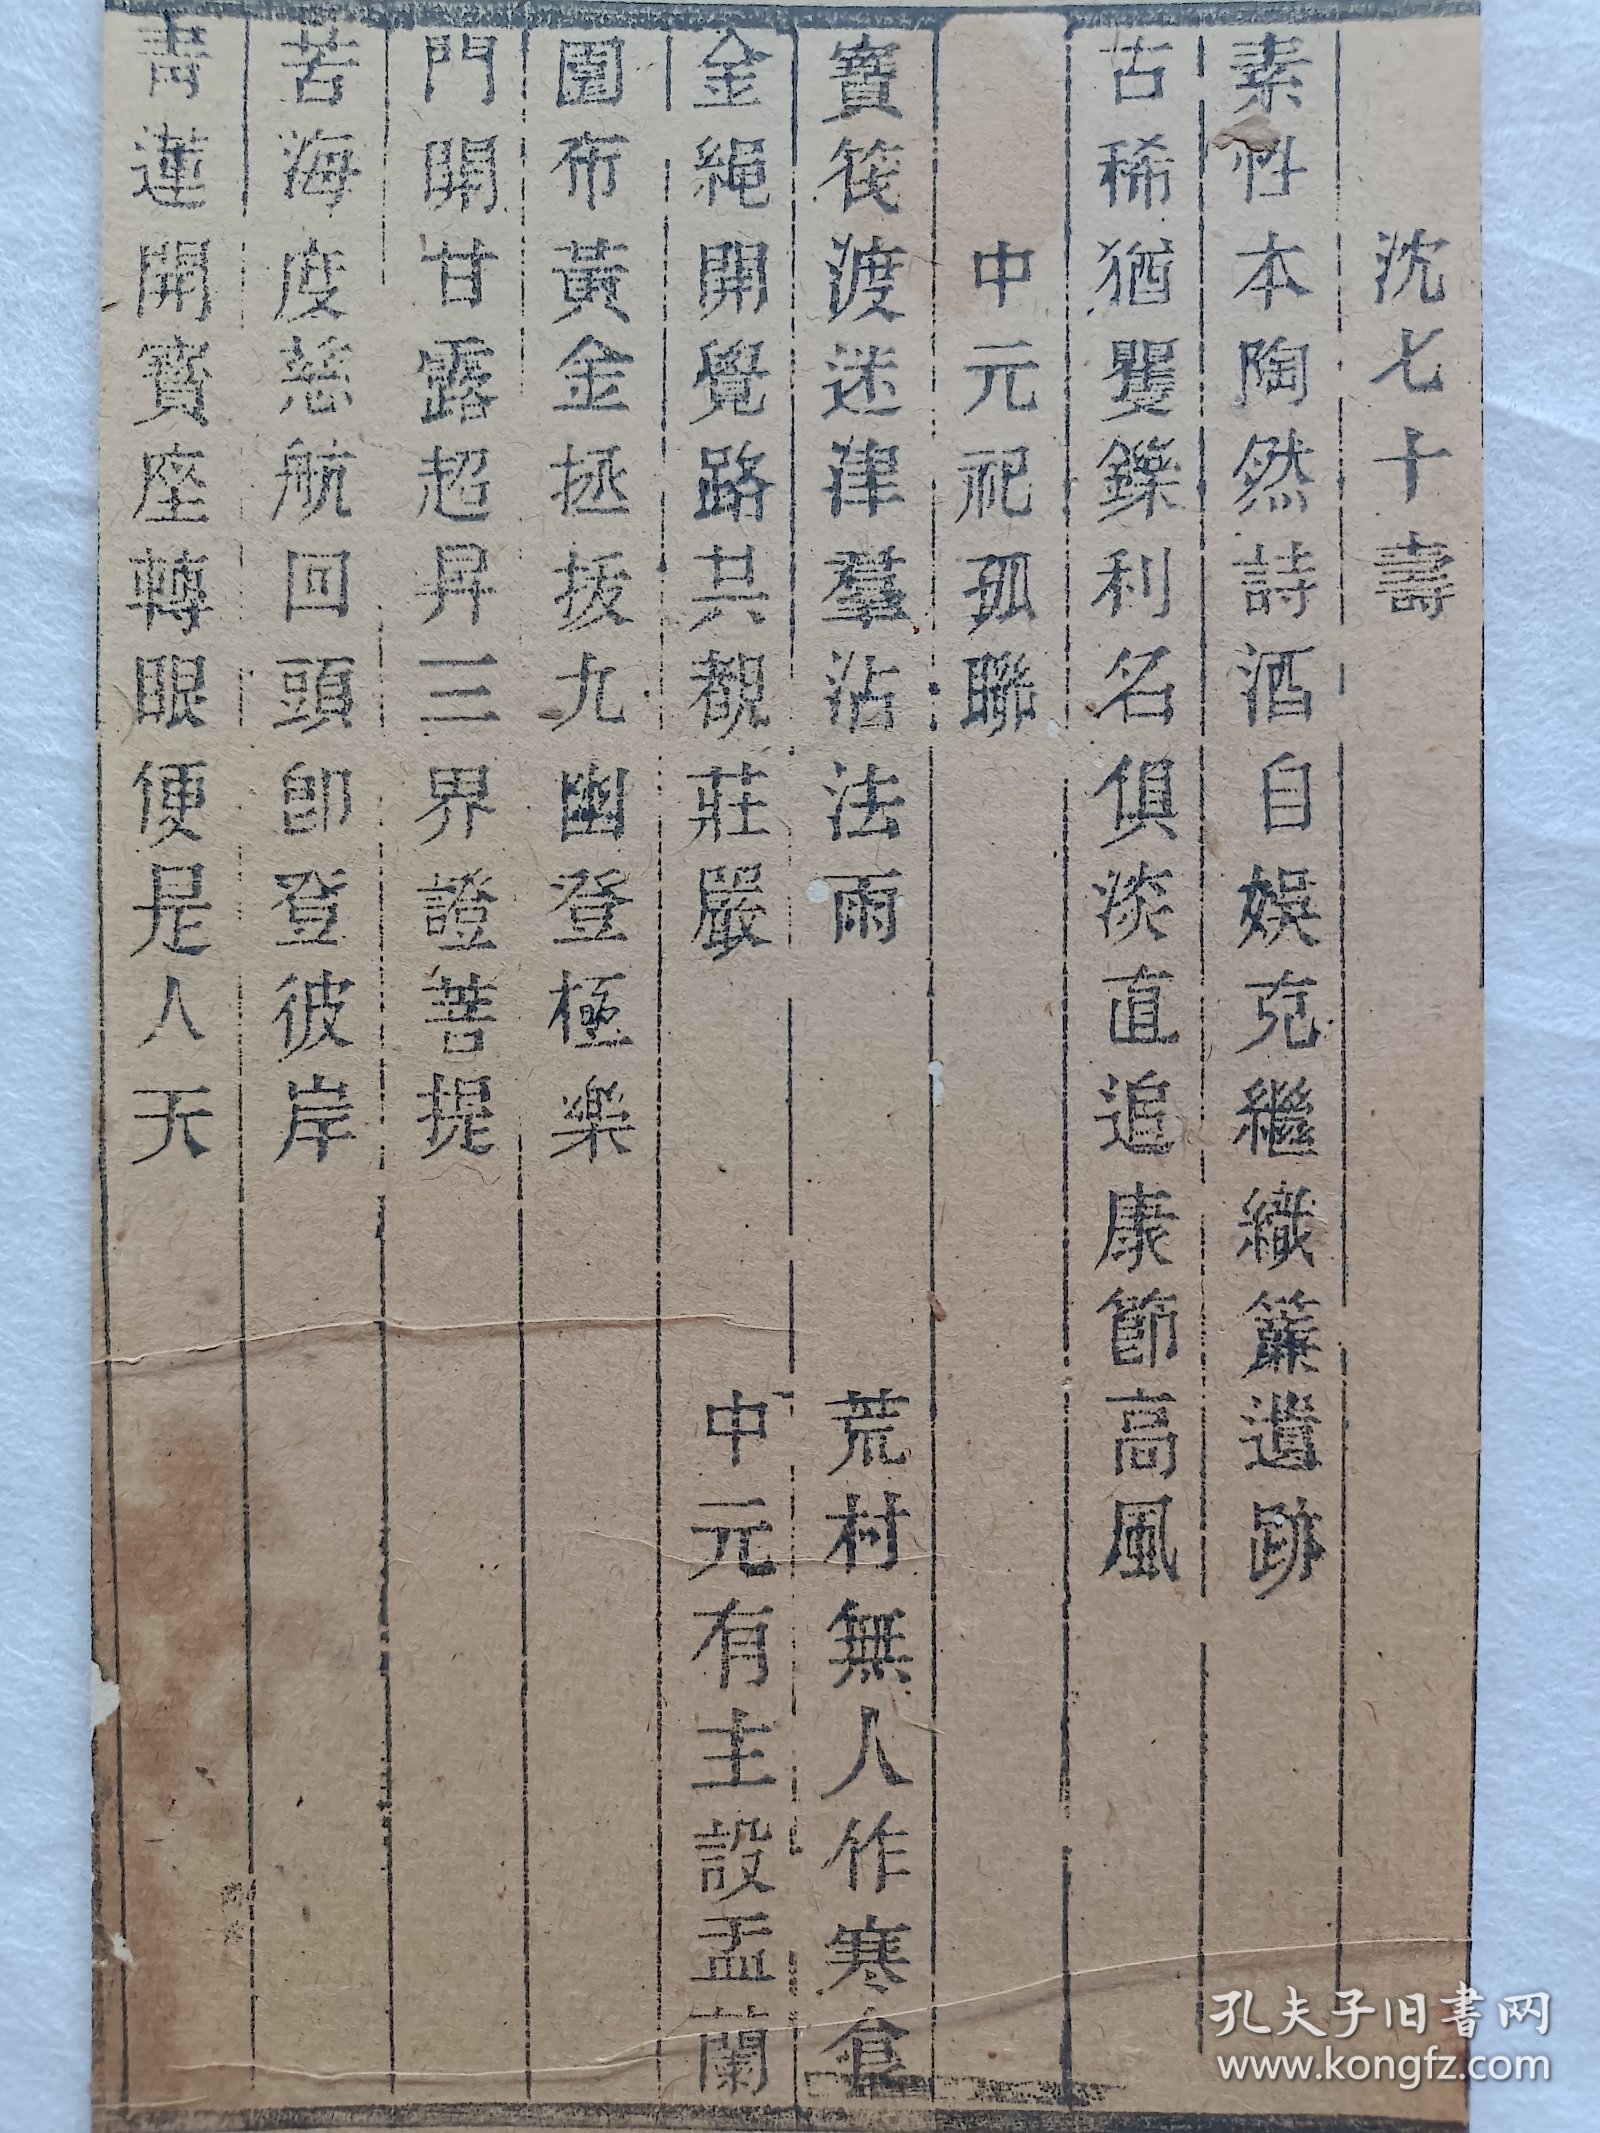 沈七十壽
素性本陶然詩酒自娛克繼織簾遺跡
古稀猶矍鑠利名俱淡直追康節高風
中元祀孤聯
寶筏渡迷津羣沾法雨 荒村無人作寒食
金繩開覺路共覩莊嚴 中元有主設盂蘭
園布黃金拯拔九幽登極樂
門開甘露超昇三界證菩提
苦海度慈航回頭卽登彼岸
青蓮開寶座轉眼便是人天
孔夫子旧书网
www.kongfz.com